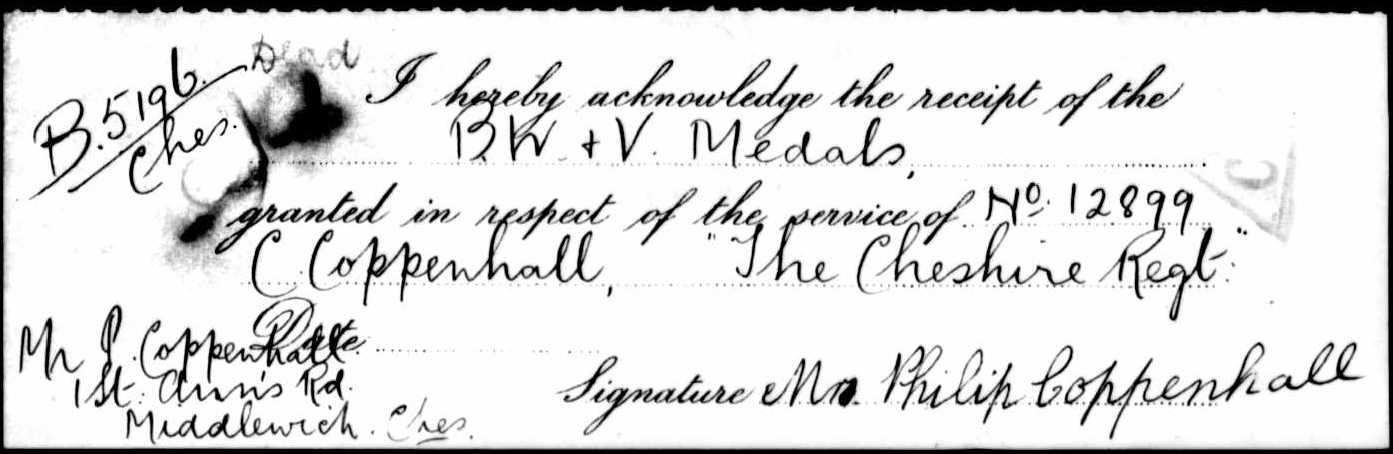 B.5196. Dead
Ches.
I hereby acknowledge the receipt of the
B.W. + V. Medals,
granted in respect of the service of No. 12899
C Coppenhall, "The Cheshire Regt."
C
Date
Mr P. Coppenhall
1 St. Ann's Rd.
Middlewich. Ches.
Signature Mr. Philip Coppenhall